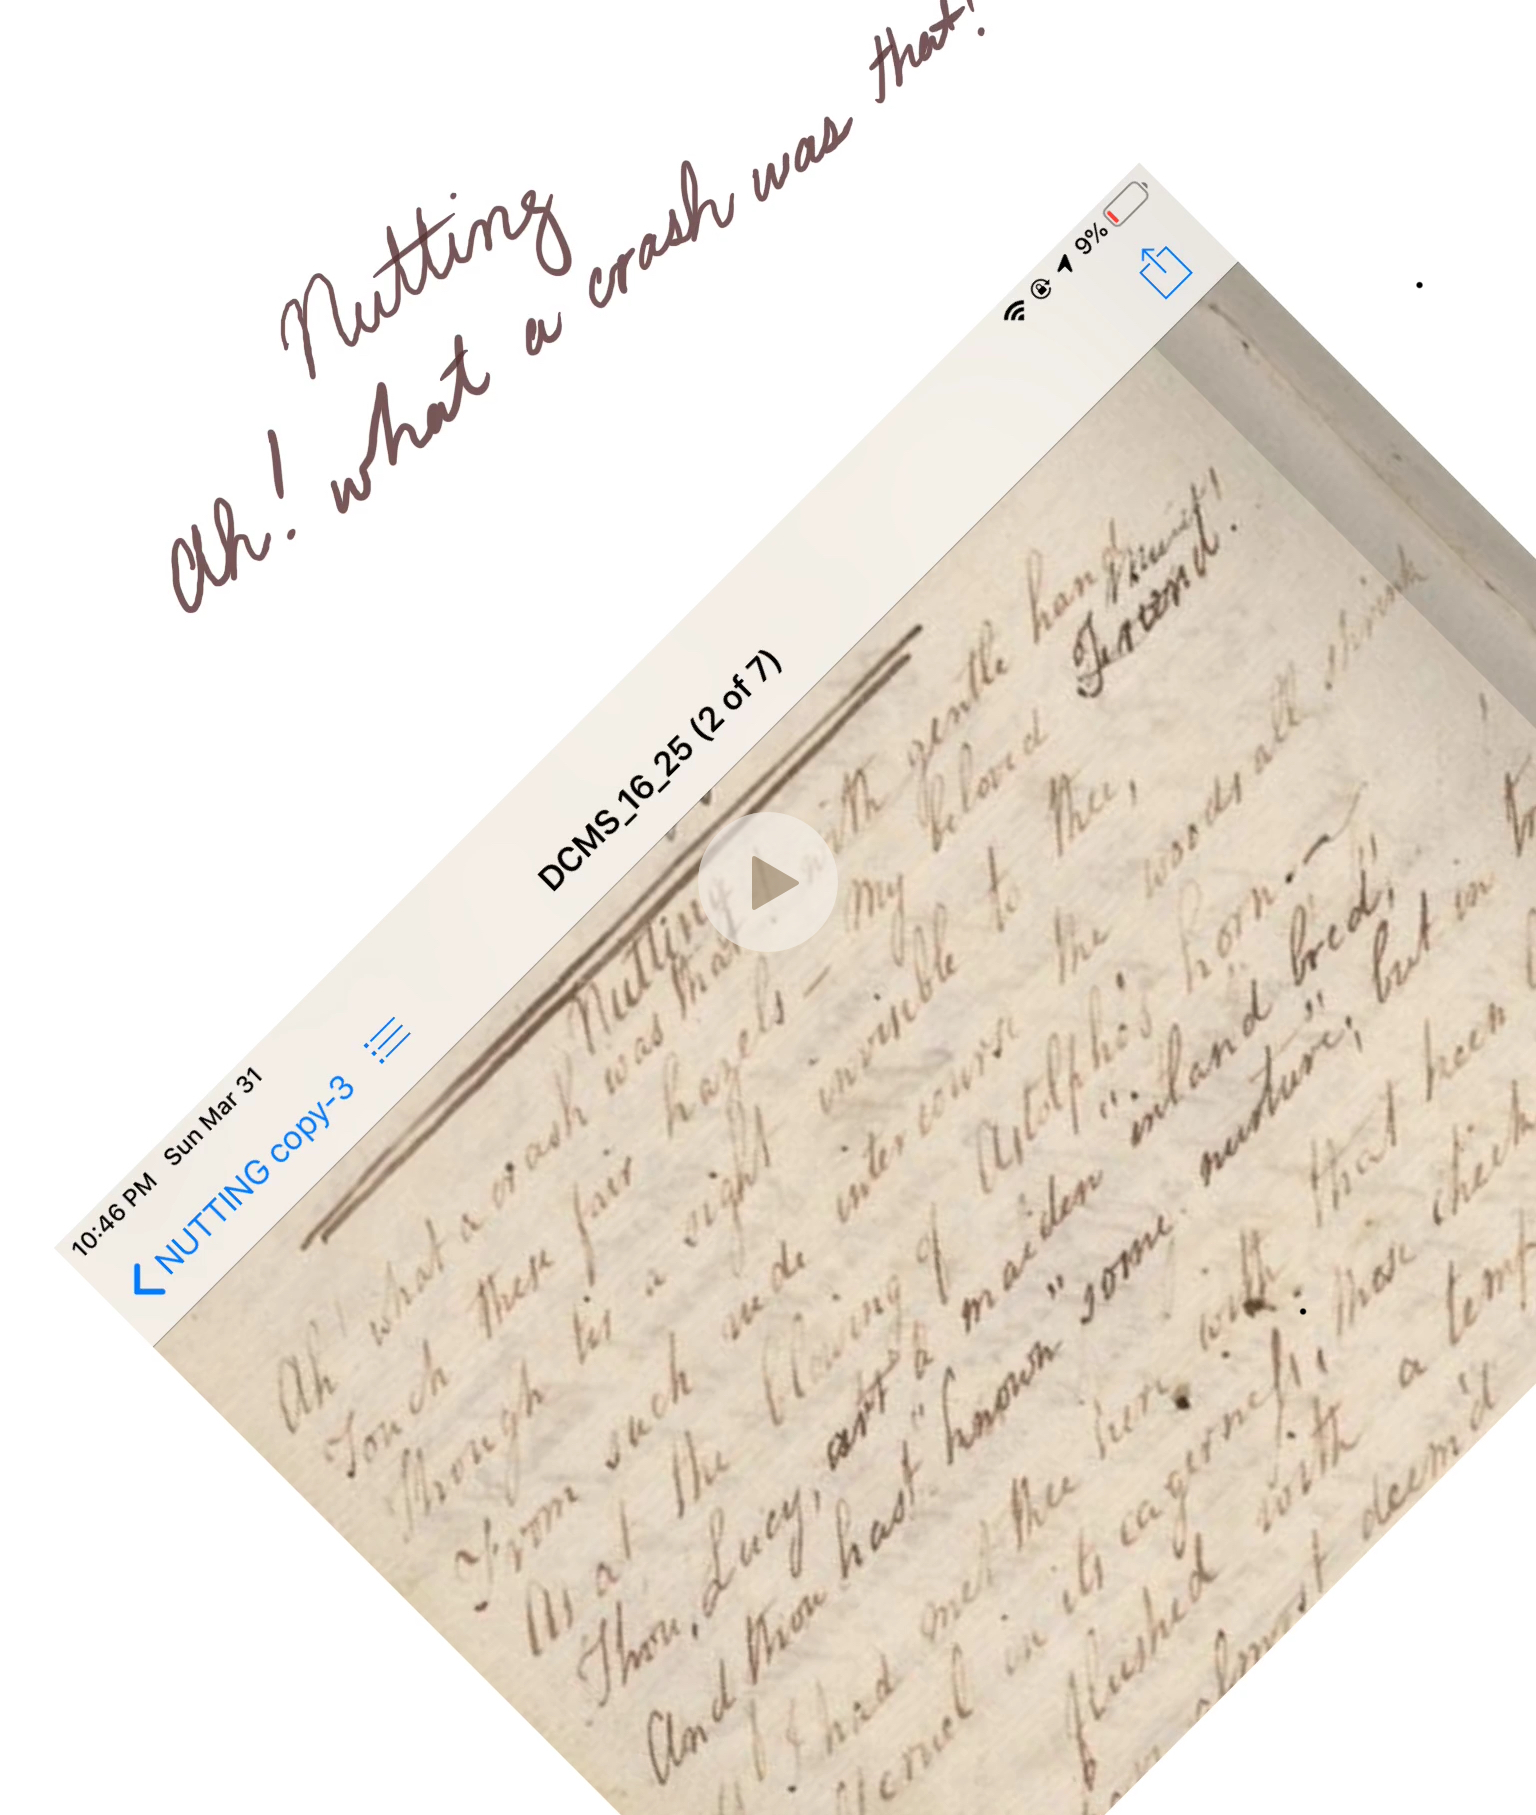 Nutting
Ah! what a crash was that!
10:46 PM Sun Mar 31
9%
NUTTING copy-3
DCMS_16_25 (2 of 7)
Nutting
Ah! what a crash was that! with gentle hand
Touch these fair hazels – My beloved Friend!
Though tis a sight invisible to thee,
From such rude intercourse the woods all shrink
As at the blowing of Astolpho's horn. –
Thou, Lucy, art a maiden "inland bred,"
And thou hast "known some nurture"; but in
If I had met thee here with that keen
cruel in its eagerness, those cheek
flushed with a temp
almost deem'd